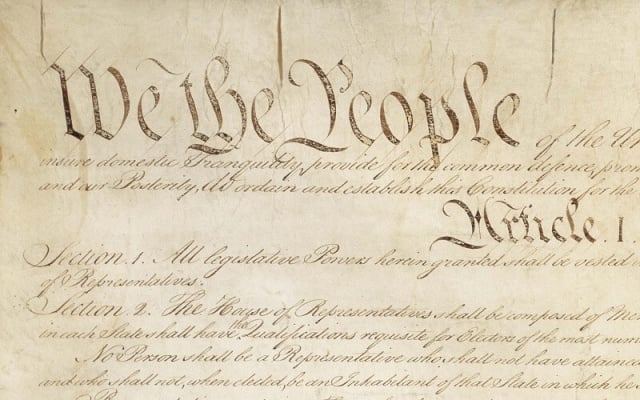 We the People of the
insure domestic Tranquility, provide for the common defence, prom
and our Posterity, do ordain and establish this Constitution for the
Article. I.
Section. 1. All legislative Powers herein granted shall be vested
of Representatives.
Section. 2. The House of Representatives shall be composed of Me
in each State shall have the Qualifications requisite for Electors of the most num
No Person shall be a Representative who shall not have attaine
and who shall not, when elected, be an Inhabitant of that State in which he